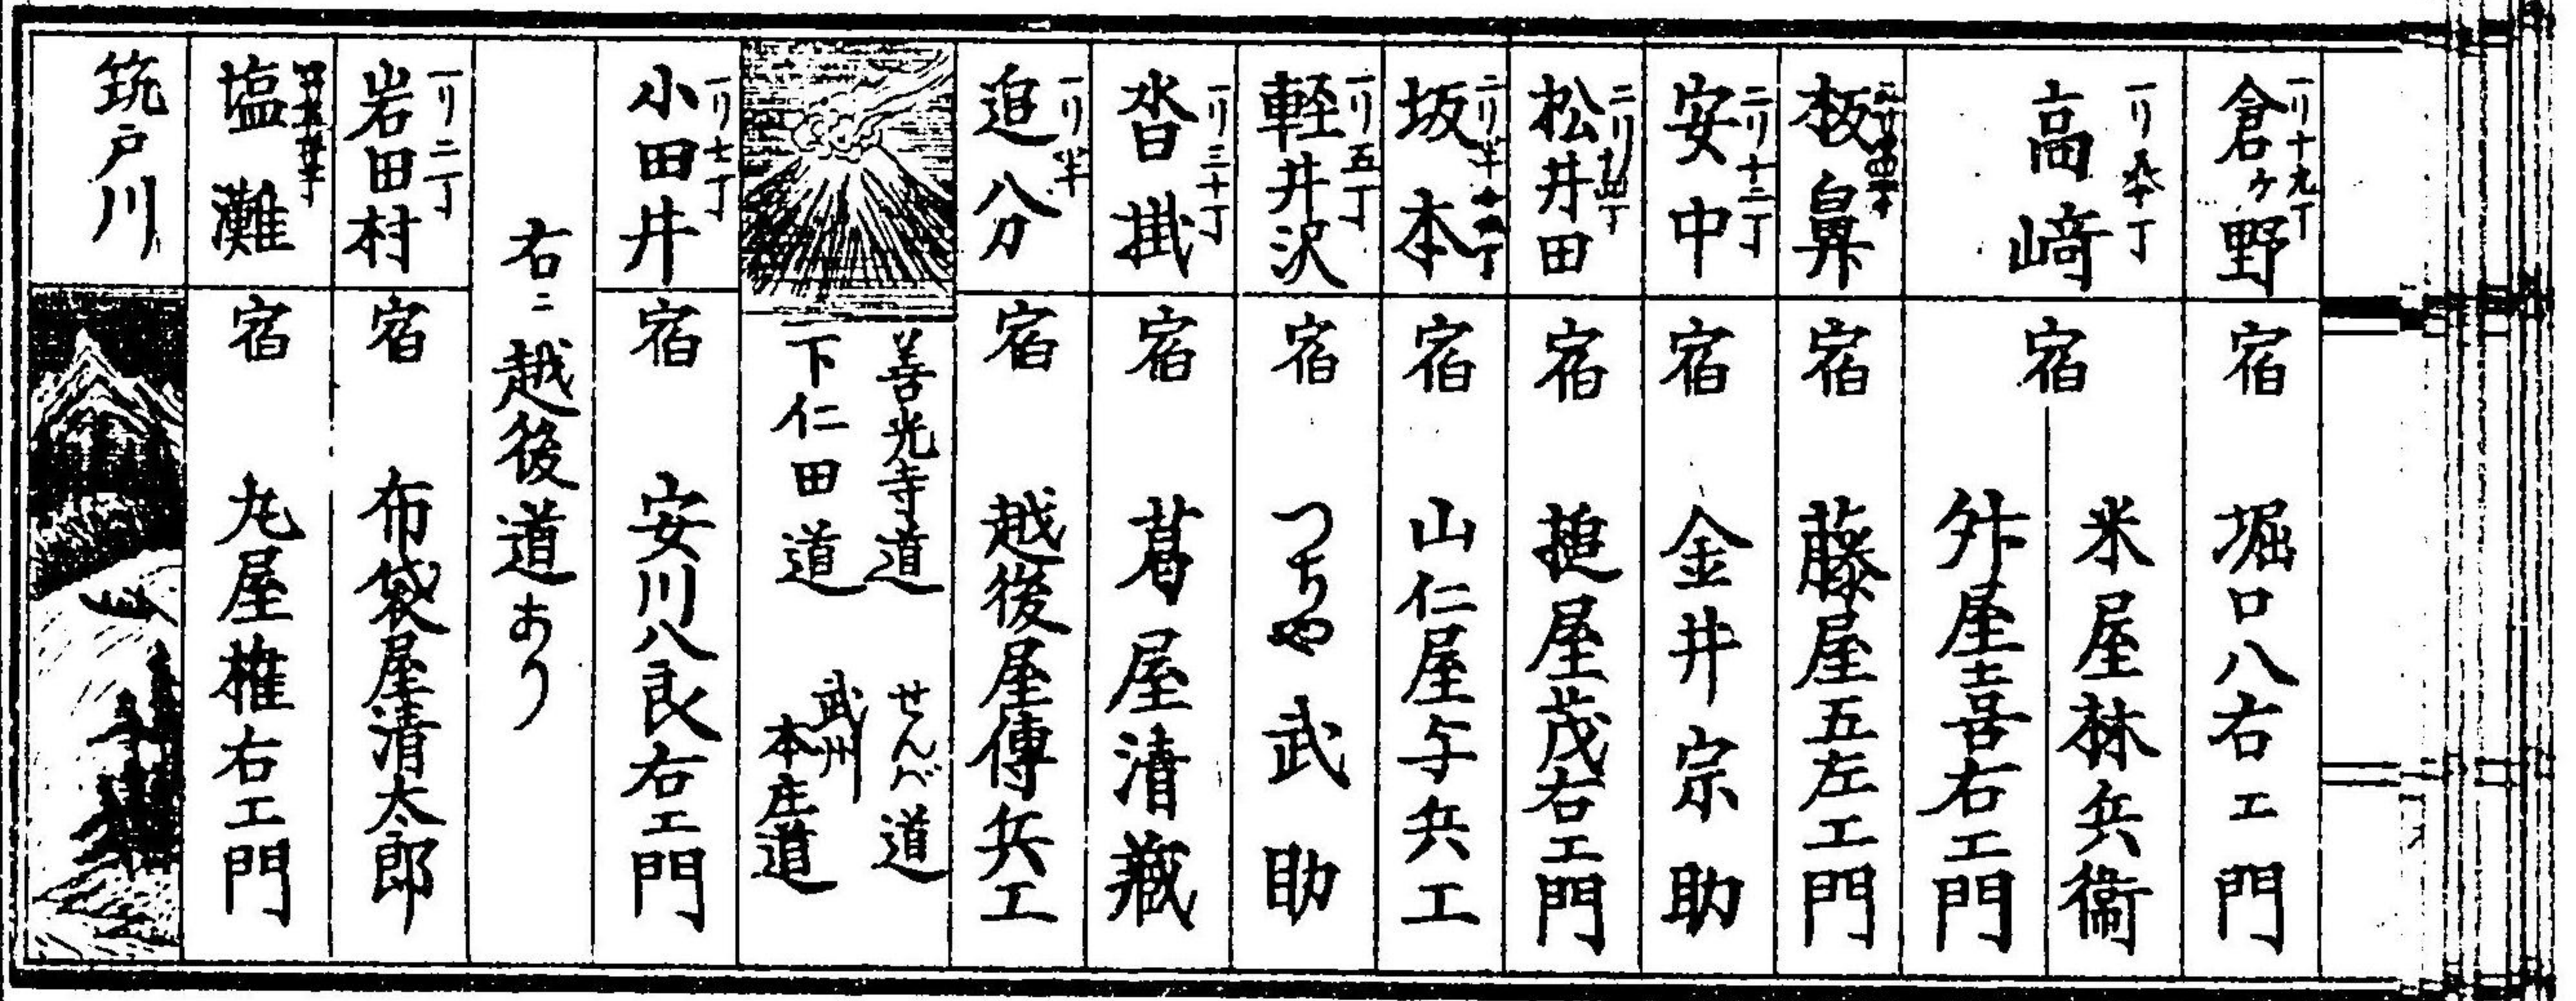 一リ十九丁
倉ケ野 宿 堀口八右エ門
一リ 丁
高﨑 宿 米屋林兵衞
舛屋㐂右エ門
板鼻 宿 藤屋五左エ門
二リ十二丁
安中 宿 金井宗助
二リ 丁
松井田 宿 搥屋茂右エ門
二リ半 丁
坂本 宿 山仁屋与兵エ
一リ五丁
軽井沢 宿 つちや武助
一リ三十丁
沓掛 宿 葛屋清藏
一リ半
追分 宿 越後屋傳兵エ
善光寺道 せんべ道
下仁田道 武州本庄道
一リ七丁
小田井 宿 安川八良右エ門
右ニ越後道あり
一リ二丁
岩田村 宿 布袋屋清太郎
塩灘 宿 丸屋権右エ門
筑戸川